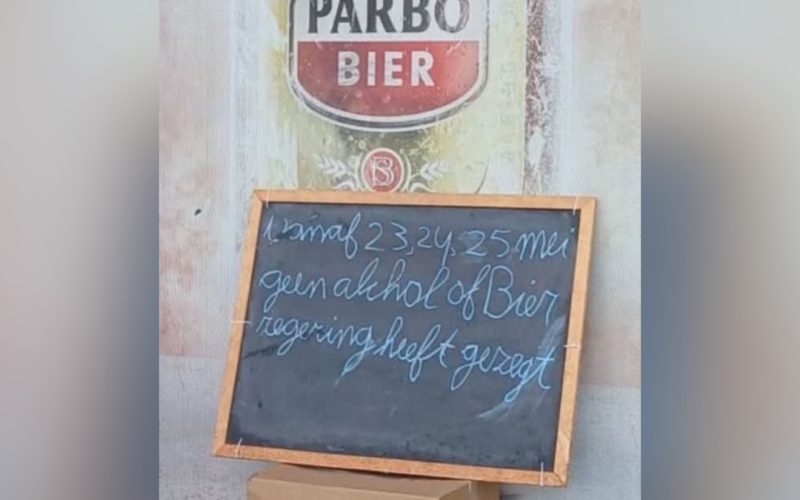 PARBO
BIER
B
vanaf 23, 24, 25 mei
geen alchol of Bier
regering heeft gezegt